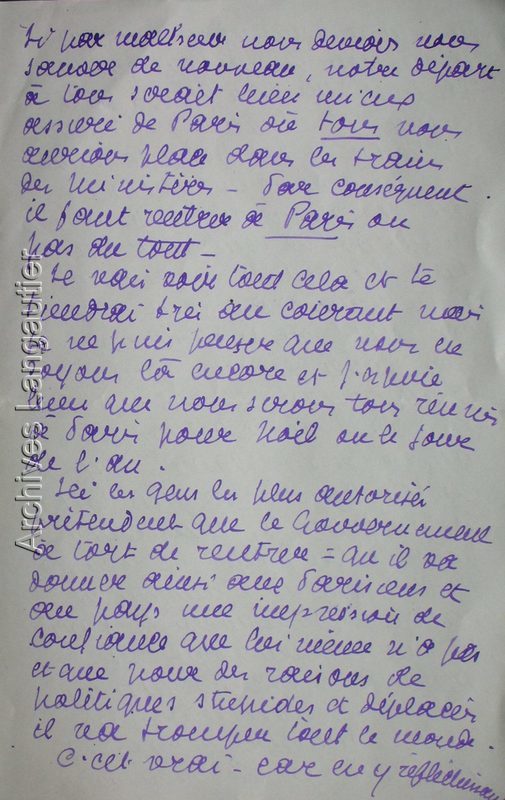 Si par malheur nous devions nous
sauver de nouveau, notre départ
à tous serait bien mieux
assuré de Paris où tous nous
aurions place dans les trains
des ministères - Par conséquent
il faut rentrer à Paris ou
pas du tout -
Je vais voir tout cela et te
tiendrai très au courant mais
je ne puis penser que nous en
soyons là encore et j'espère
bien que nous serons tous réunis
à Paris pour Noël ou le jour
de l'an.
Ici les gens les plus autorisés
prétendent que le Gouvernement
a tort de rentrer = qu'il va
donner ainsi aux Parisiens et
au pays une impression de
confiance que lui même n'a pas
et que pour des raisons de
politiques stupides et déplacées
il va tromper tout le monde.
C'est vrai - car en y réfléchissant
Archives Langautier